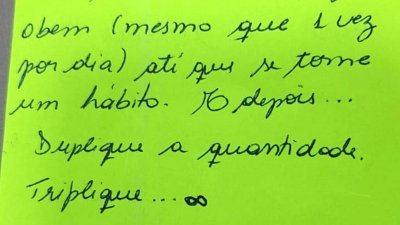 obem (mesmo que 1 vez
por dia) até que se torne
um hábito. E depois...
Duplique a quantidade.
Triplique... ∞